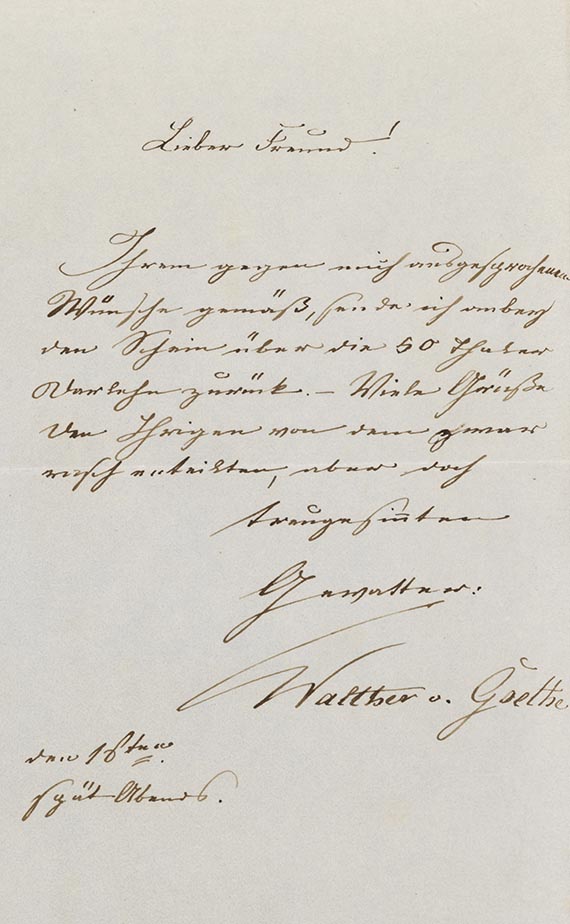 Lieber Freund!
Ihrem gegen mich ausgesprochenen
Wunsche gemäß, sende ich anbey
den Schein über die 50 Thaler
Darlehn zurück. – Viele Grüße
den Ihrigen von dem zwar
rasch enteilten, aber doch
treugesinnten
Gevatter:
Walther v. Goethe
den 1sten
spät Abends.